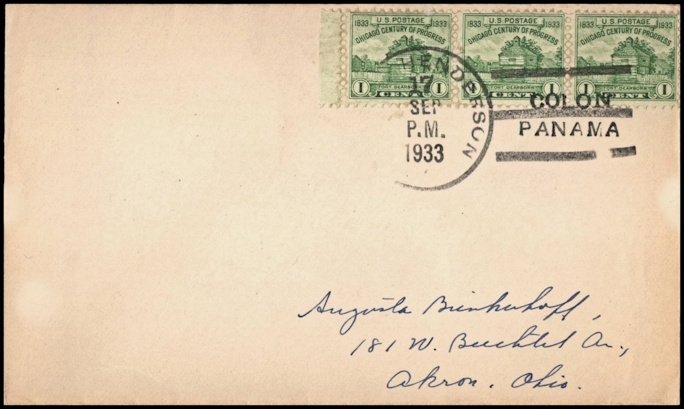 1833 U.S. POSTAGE 1933
CHICAGO CENTURY OF PROGRESS
FORT DEARBORN
1 CENT 1
1833 U.S. POSTAGE 1933
CHICAGO CENTURY OF PROGRESS
FORT DEARBORN
1 CENT 1
1833 U.S. POSTAGE 1933
CHICAGO CENTURY OF PROGRESS
FORT DEARBORN
1 CENT 1
HENDERSON
17
SEP
P.M.
1933
COLON
PANAMA
Augusta Brinkerhoff,
181 W. Av.,
Akron, Ohio.